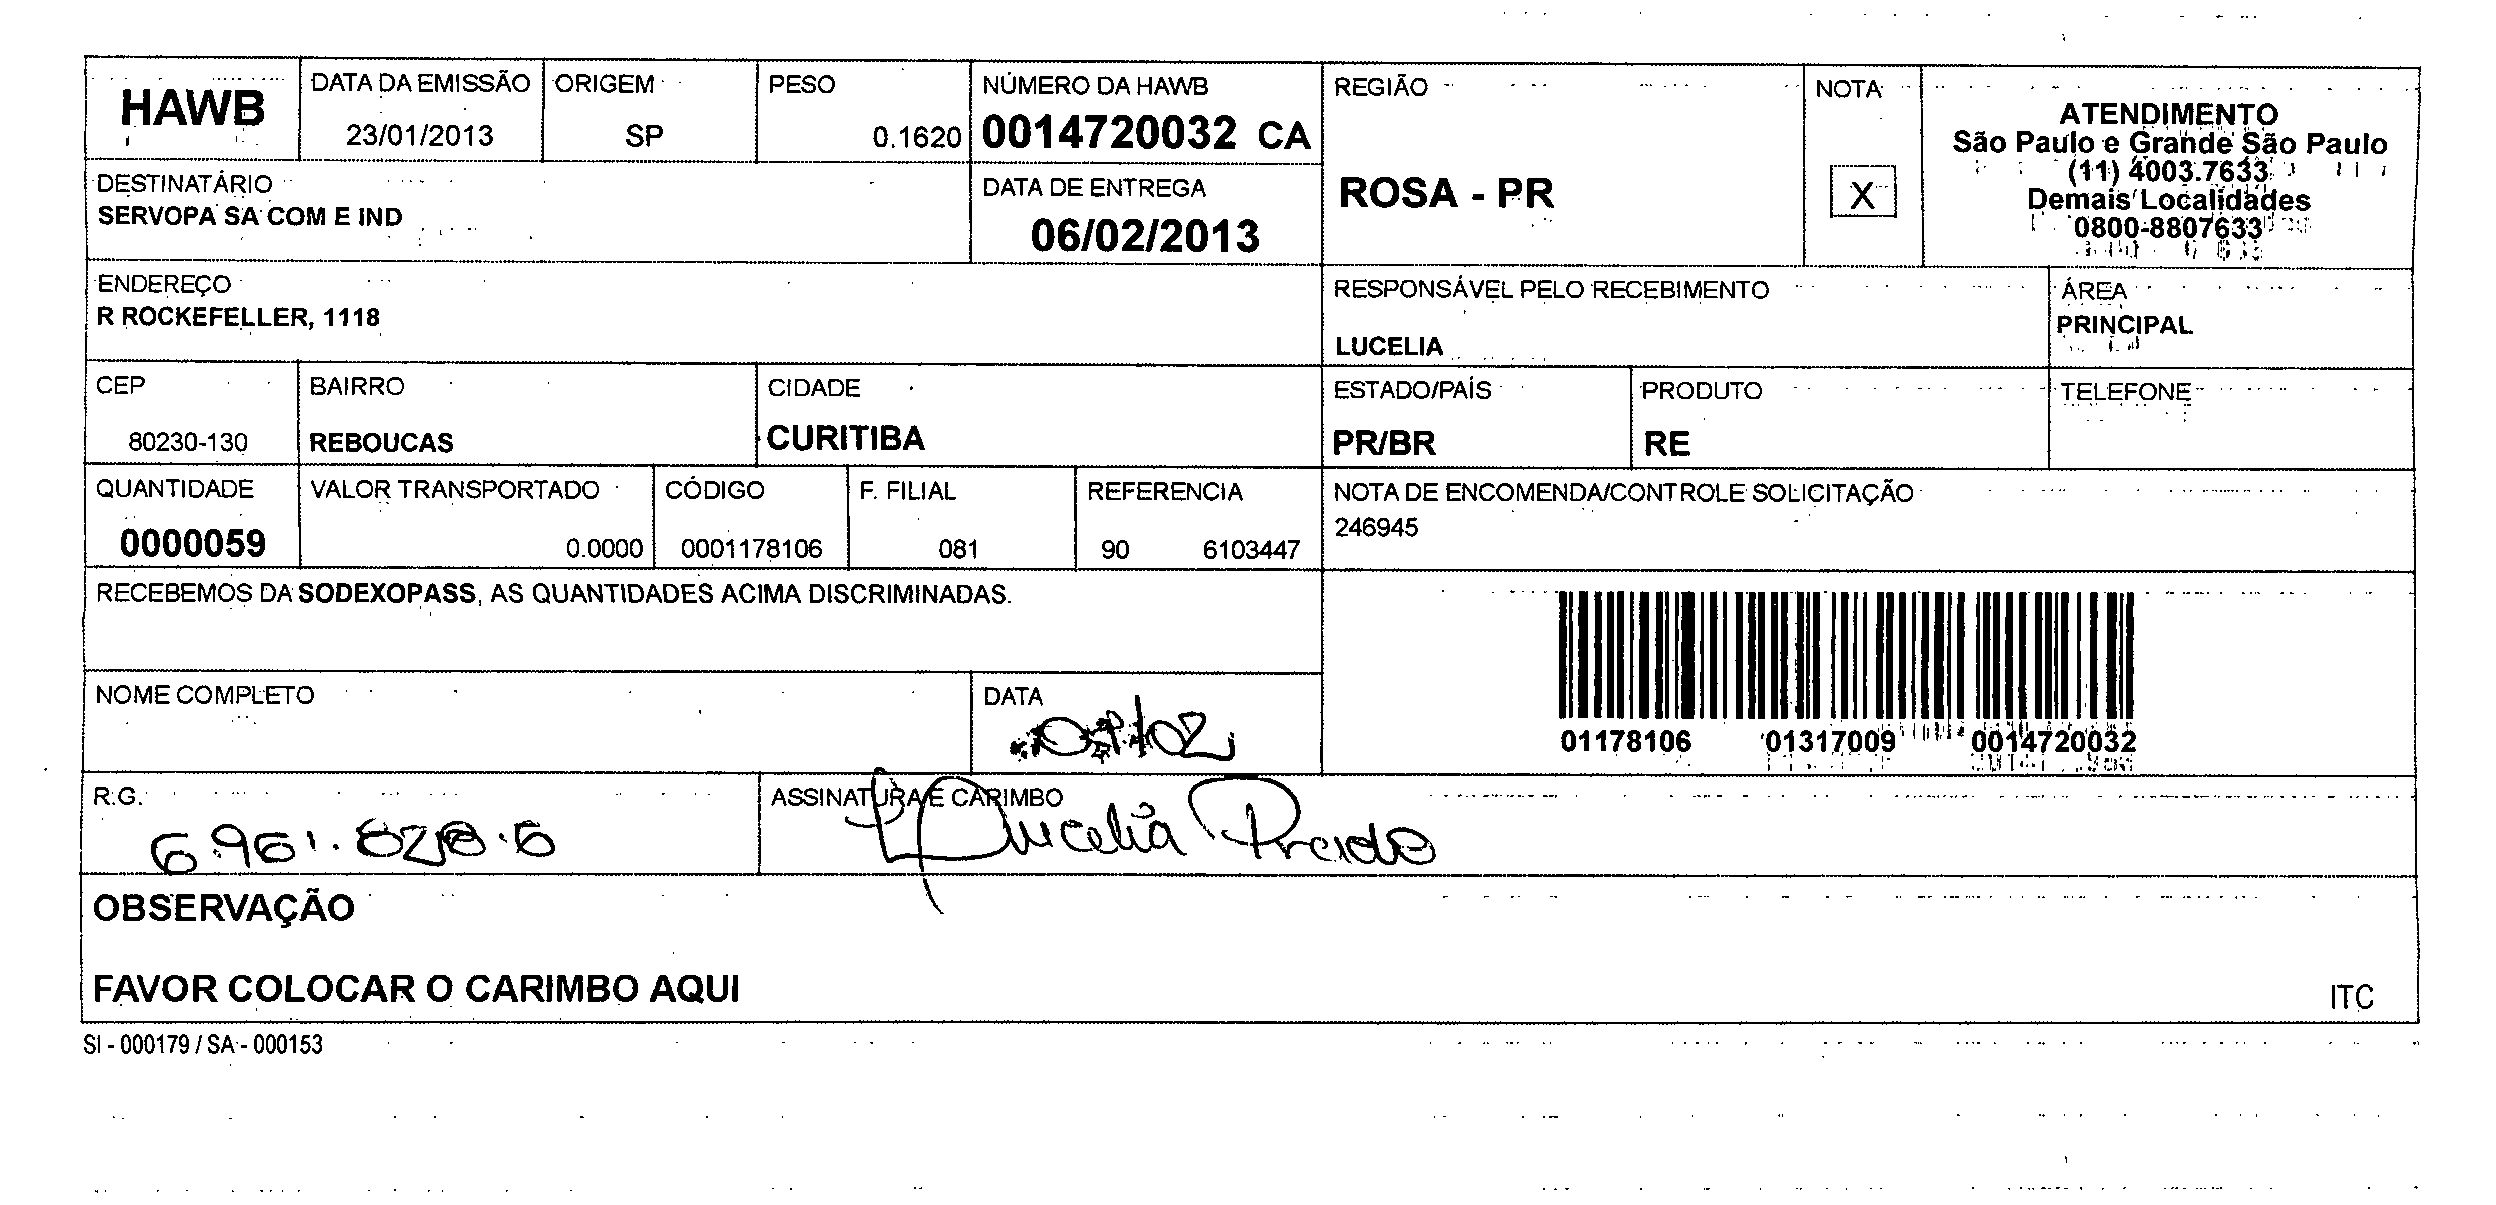 HAWB
DATA DA EMISSÃO
23/01/2013
ORIGEM
SP
PESO
0.1620
NÚMERO DA HAWB
0014720032 CA
REGIÃO
ROSA - PR
NOTA
X
ATENDIMENTO
São Paulo e Grande São Paulo
(11) 4003.7633
Demais Localidades
0800-8807633
DESTINATÁRIO
SERVOPA SA COM E IND
DATA DE ENTREGA
06/02/2013
ENDEREÇO
R ROCKEFELLER, 1118
RESPONSÁVEL PELO RECEBIMENTO
LUCELIA
ÁREA
PRINCIPAL
CEP
80230-130
BAIRRO
REBOUCAS
CIDADE
CURITIBA
ESTADO/PAÍS
PR/BR
PRODUTO
RE
TELEFONE
QUANTIDADE
0000059
VALOR TRANSPORTADO
0.0000
CÓDIGO
0001178106
F. FILIAL
081
REFERENCIA
90 6103447
NOTA DE ENCOMENDA/CONTROLE SOLICITAÇÃO
246945
RECEBEMOS DA SODEXOPASS, AS QUANTIDADES ACIMA DISCRIMINADAS.
01178106 01317009 0014720032
NOME COMPLETO
DATA
R.G.
6.961.828.6
ASSINATURA E CARIMBO
Lucelia Prado
OBSERVAÇÃO
FAVOR COLOCAR O CARIMBO AQUI
ITC
SI - 000179 / SA - 000153